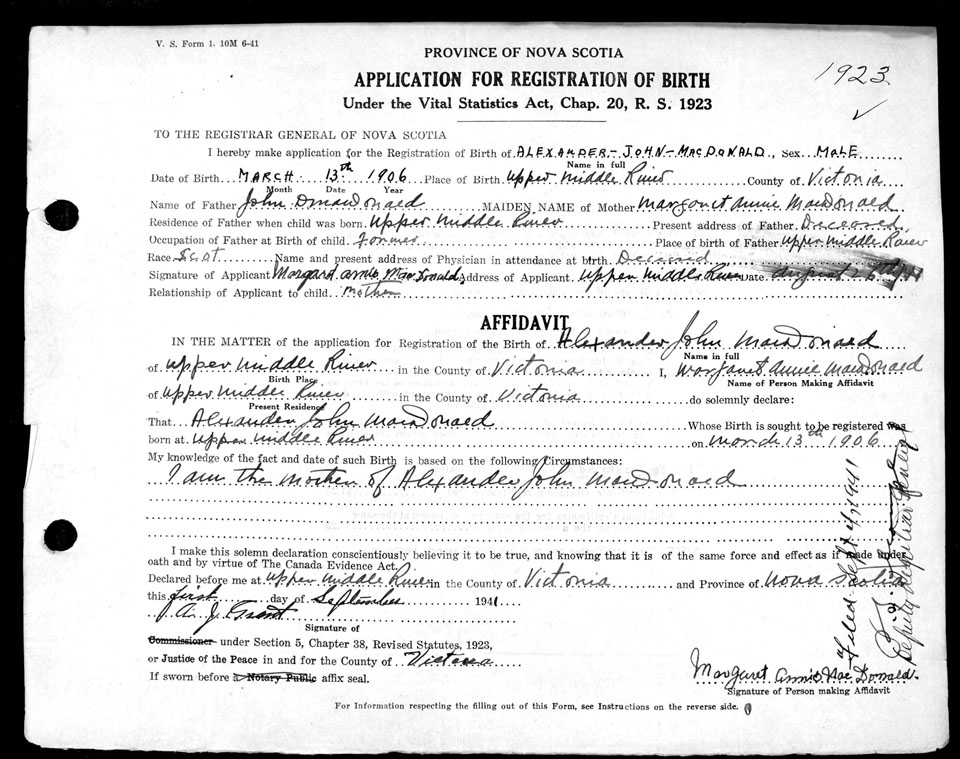 V. S. Form 1. 10M 6-41
PROVINCE OF NOVA SCOTIA
1923
APPLICATION FOR REGISTRATION OF BIRTH
Under the Vital Statistics Act, Chap. 20, R. S. 1923
TO THE REGISTRAR GENERAL OF NOVA SCOTIA
I hereby make application for the Registration of Birth of ALEXANDER - JOHN - MACDONALD, Sex MALE
Name in full
Date of Birth MARCH 13th 1906 Place of Birth Upper Middle River County of Victoria
Month Date Year
Name of Father John D MacDonald MAIDEN NAME of Mother Margaret Annie MacDonald
Residence of Father when child was born Upper Middle River Present address of Father Deceased
Occupation of Father at Birth of child farmer Place of birth of Father Upper Middle River
Race Scot Name and present address of Physician in attendance at birth Deceased
Signature of Applicant Margaret Annie MacDonald Address of Applicant Upper Middle River Date August 26th
Relationship of Applicant to child mother
AFFIDAVIT
IN THE MATTER of the application for Registration of the Birth of Alexander John MacDonald
Name in full
of Upper Middle River in the County of Victoria I, Margaret Annie MacDonald
Birth Place Name of Person Making Affidavit
of Upper Middle River in the County of Victoria do solemnly declare:
Present Residence
That Alexander John MacDonald Whose Birth is sought to be registered was
born at Upper Middle River on March 13th 1906
My knowledge of the fact and date of such Birth is based on the following Circumstances:
I am the mother of Alexander John MacDonald
I make this solemn declaration conscientiously believing it to be true, and knowing that it is of the same force and effect as if made under
oath and by virtue of The Canada Evidence Act.
Declared before me at Upper Middle River in the County of Victoria and Province of Nova Scotia
this first day of September 1941
A. J. Grant
Signature of
Commissioner under Section 5, Chapter 38, Revised Statutes, 1923,
or Justice of the Peace in and for the County of Victoria
If sworn before a Notary Public affix seal.
Margaret Annie MacDonald
Signature of Person making Affidavit
For Information respecting the filling out of this Form, see Instructions on the reverse side.
Filed Sept 4, 1941
Deputy Registrar General